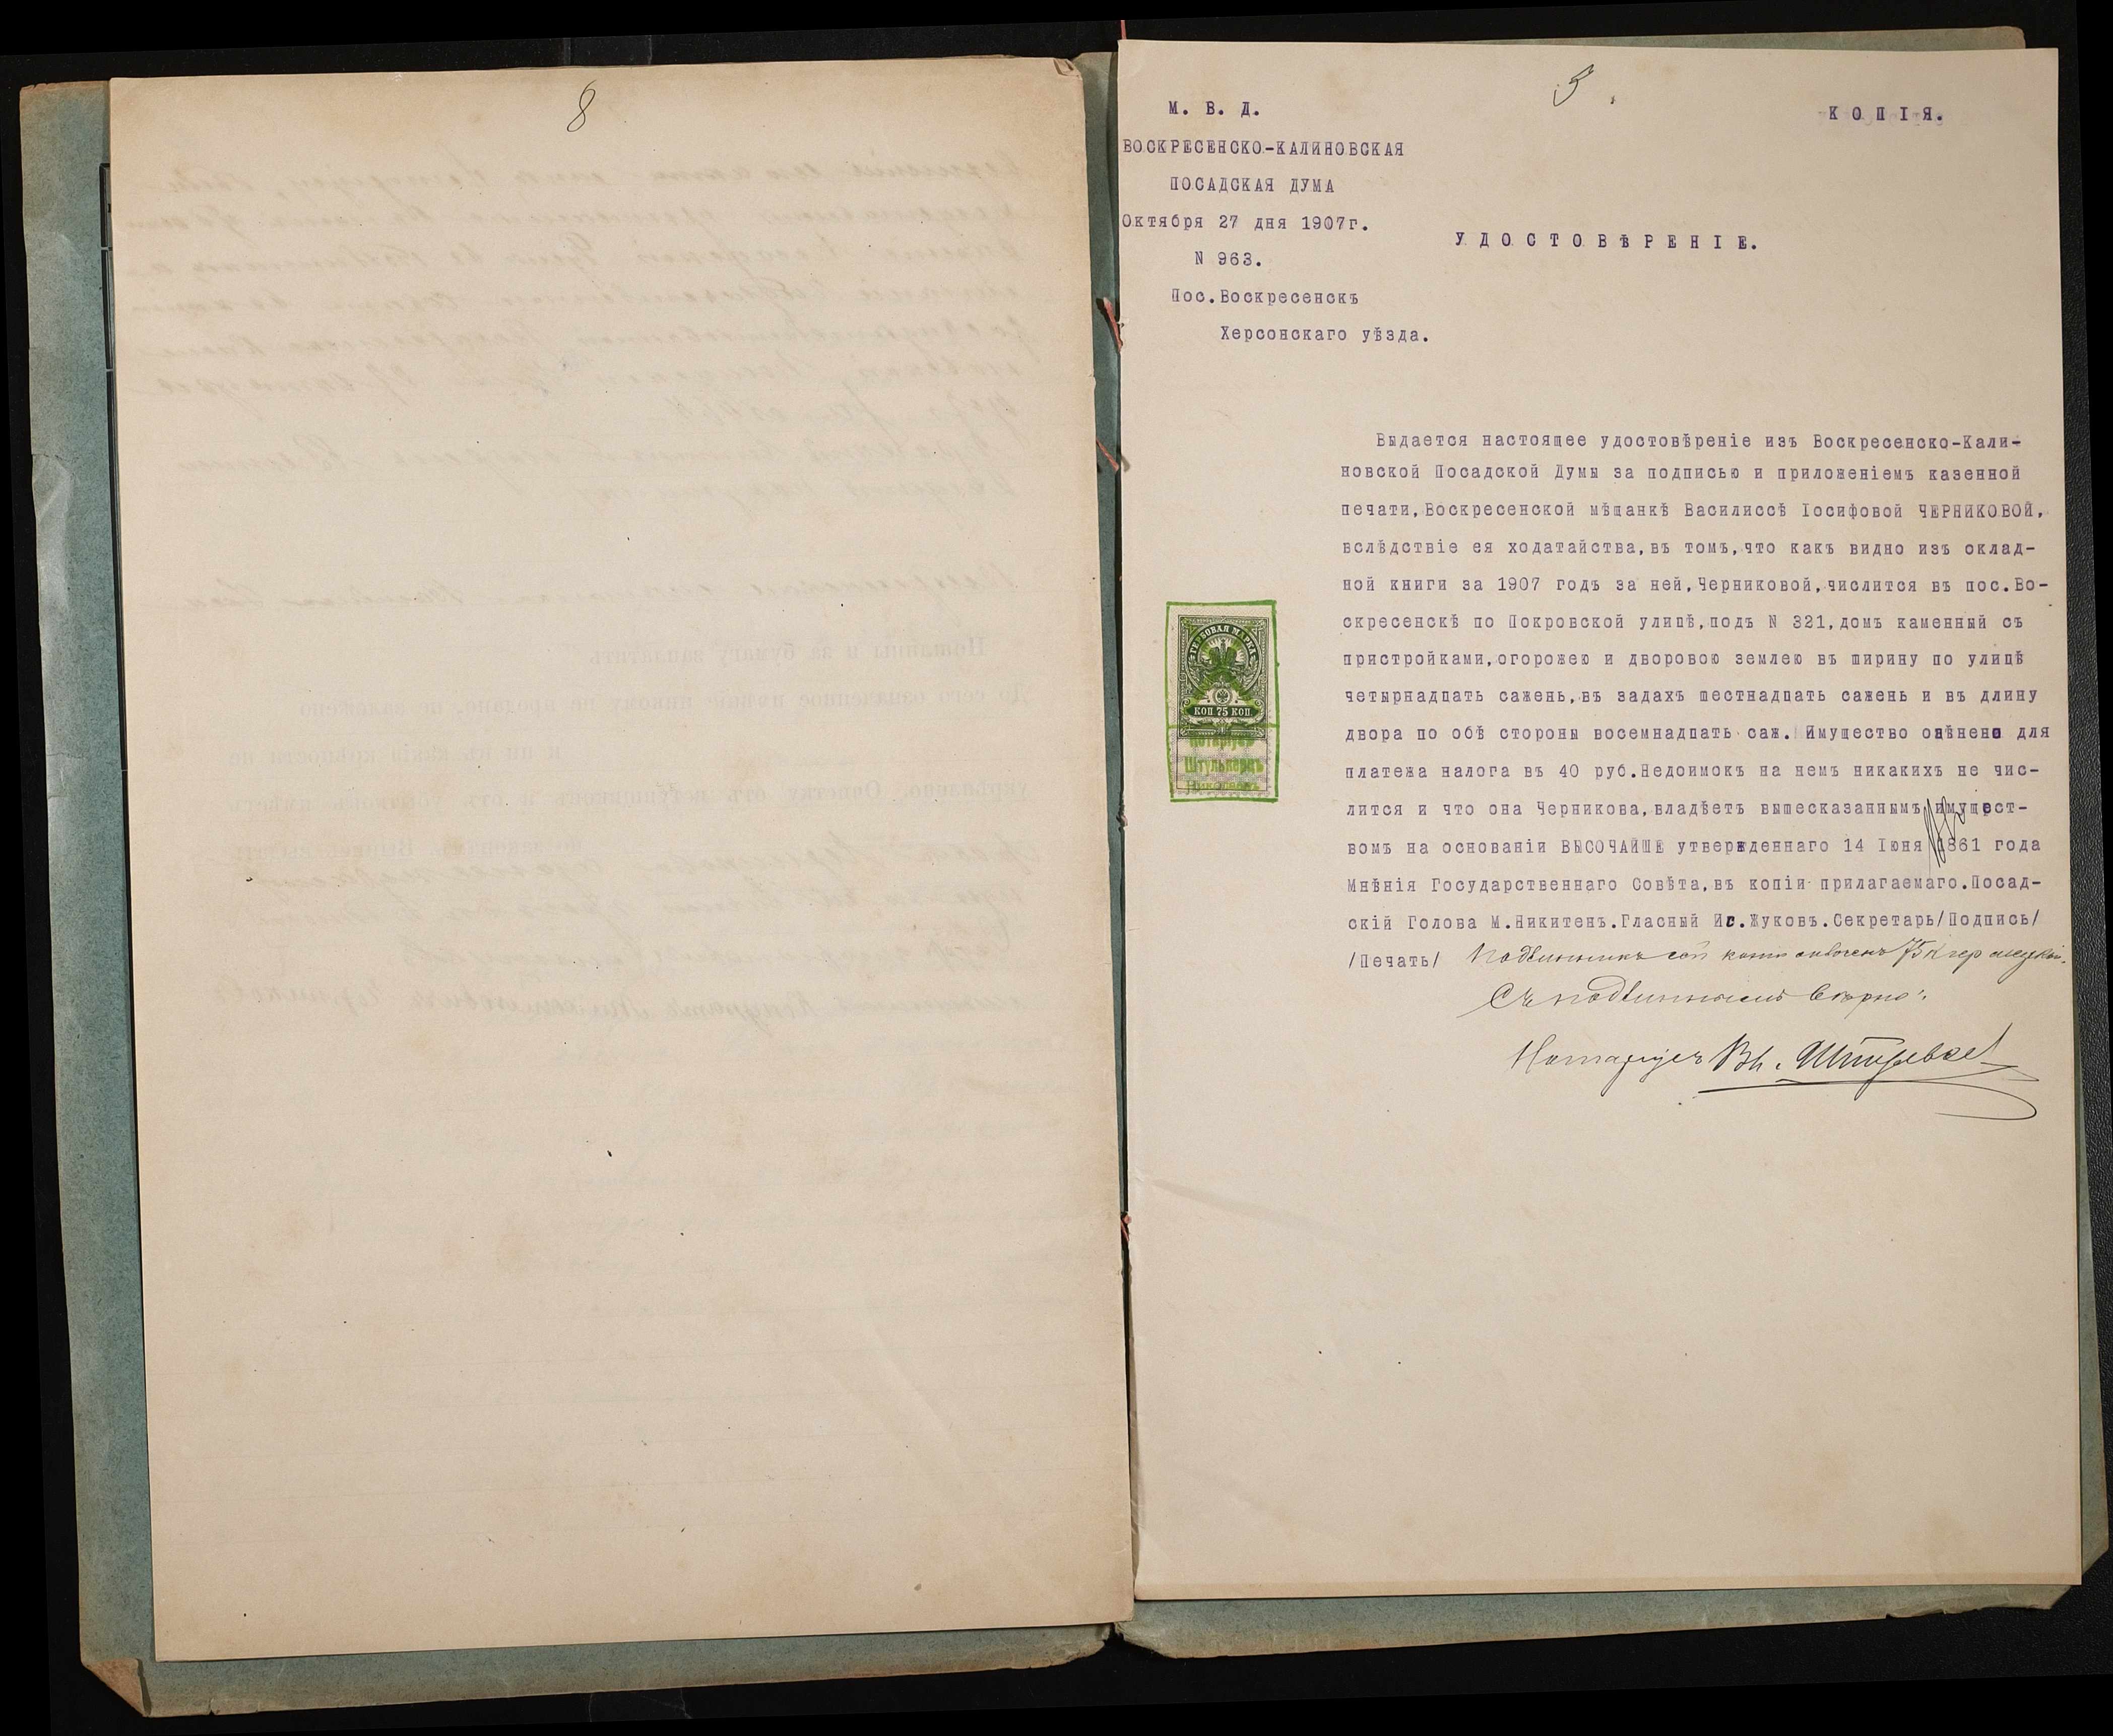 8
М. В. Д.
КОПІЯ.
ВОСКРЕСЕНСКО-КАЛИНОВСКАЯ
ПОСАДСКАЯ ДУМА
Октября 27 дня 1907г.
N 963.
Пос.Воскресенскъ
Херсонскаго уѣзда.
УДОСТОВѢРЕНІЕ.
Выдается настоящее удостовѣреніе изъ Воскресенско-Кали-
новской Посадской Думы за подписью и приложеніемъ казенной
печати,Воскресенской мѣщанкѣ Василиссѣ Іосифовой ЧЕРНИКОВОЙ,
вслѣдствіе ея ходатайства,въ томъ,что какъ видно изъ оклад-
ной книги за 1907 годъ за ней,Черниковой,числится въ пос.Во-
скресенскѣ по Покровской улицѣ,подъ N 321,домъ каменный съ
пристройками,огорожею и дворовою землею въ ширину по улицѣ
четырнадцать сажень,въ задахъ шестнадцать сажень и въ длину
двора по обѣ стороны восемнадцать саж. Имущество оцѣнено для
платежа налога въ 40 руб.Недоимокъ на немъ никакихъ не чис-
лится и что она Черникова,владѣетъ вышесказаннымъ имущест-
вомъ на основаніи ВЫСОЧАЙШЕ утвержденнаго 14 Іюня 1861 года
Мнѣнія Государственнаго Совѣта,въ копіи прилагаемаго.Посад-
скій Голова М.Никитенъ.Гласный Ис.Жуковъ.Секретарь/Подпись/
/Печать/ Подлинникъ сей копіи оплоченъ 75 к гер
Съ подлиннымъ вѣрно:
Нотаріусъ Вл.
ГЕРБОВАЯ МАРКА
КОП 75 КОП
Нотаріусъ
Штулькерцъ